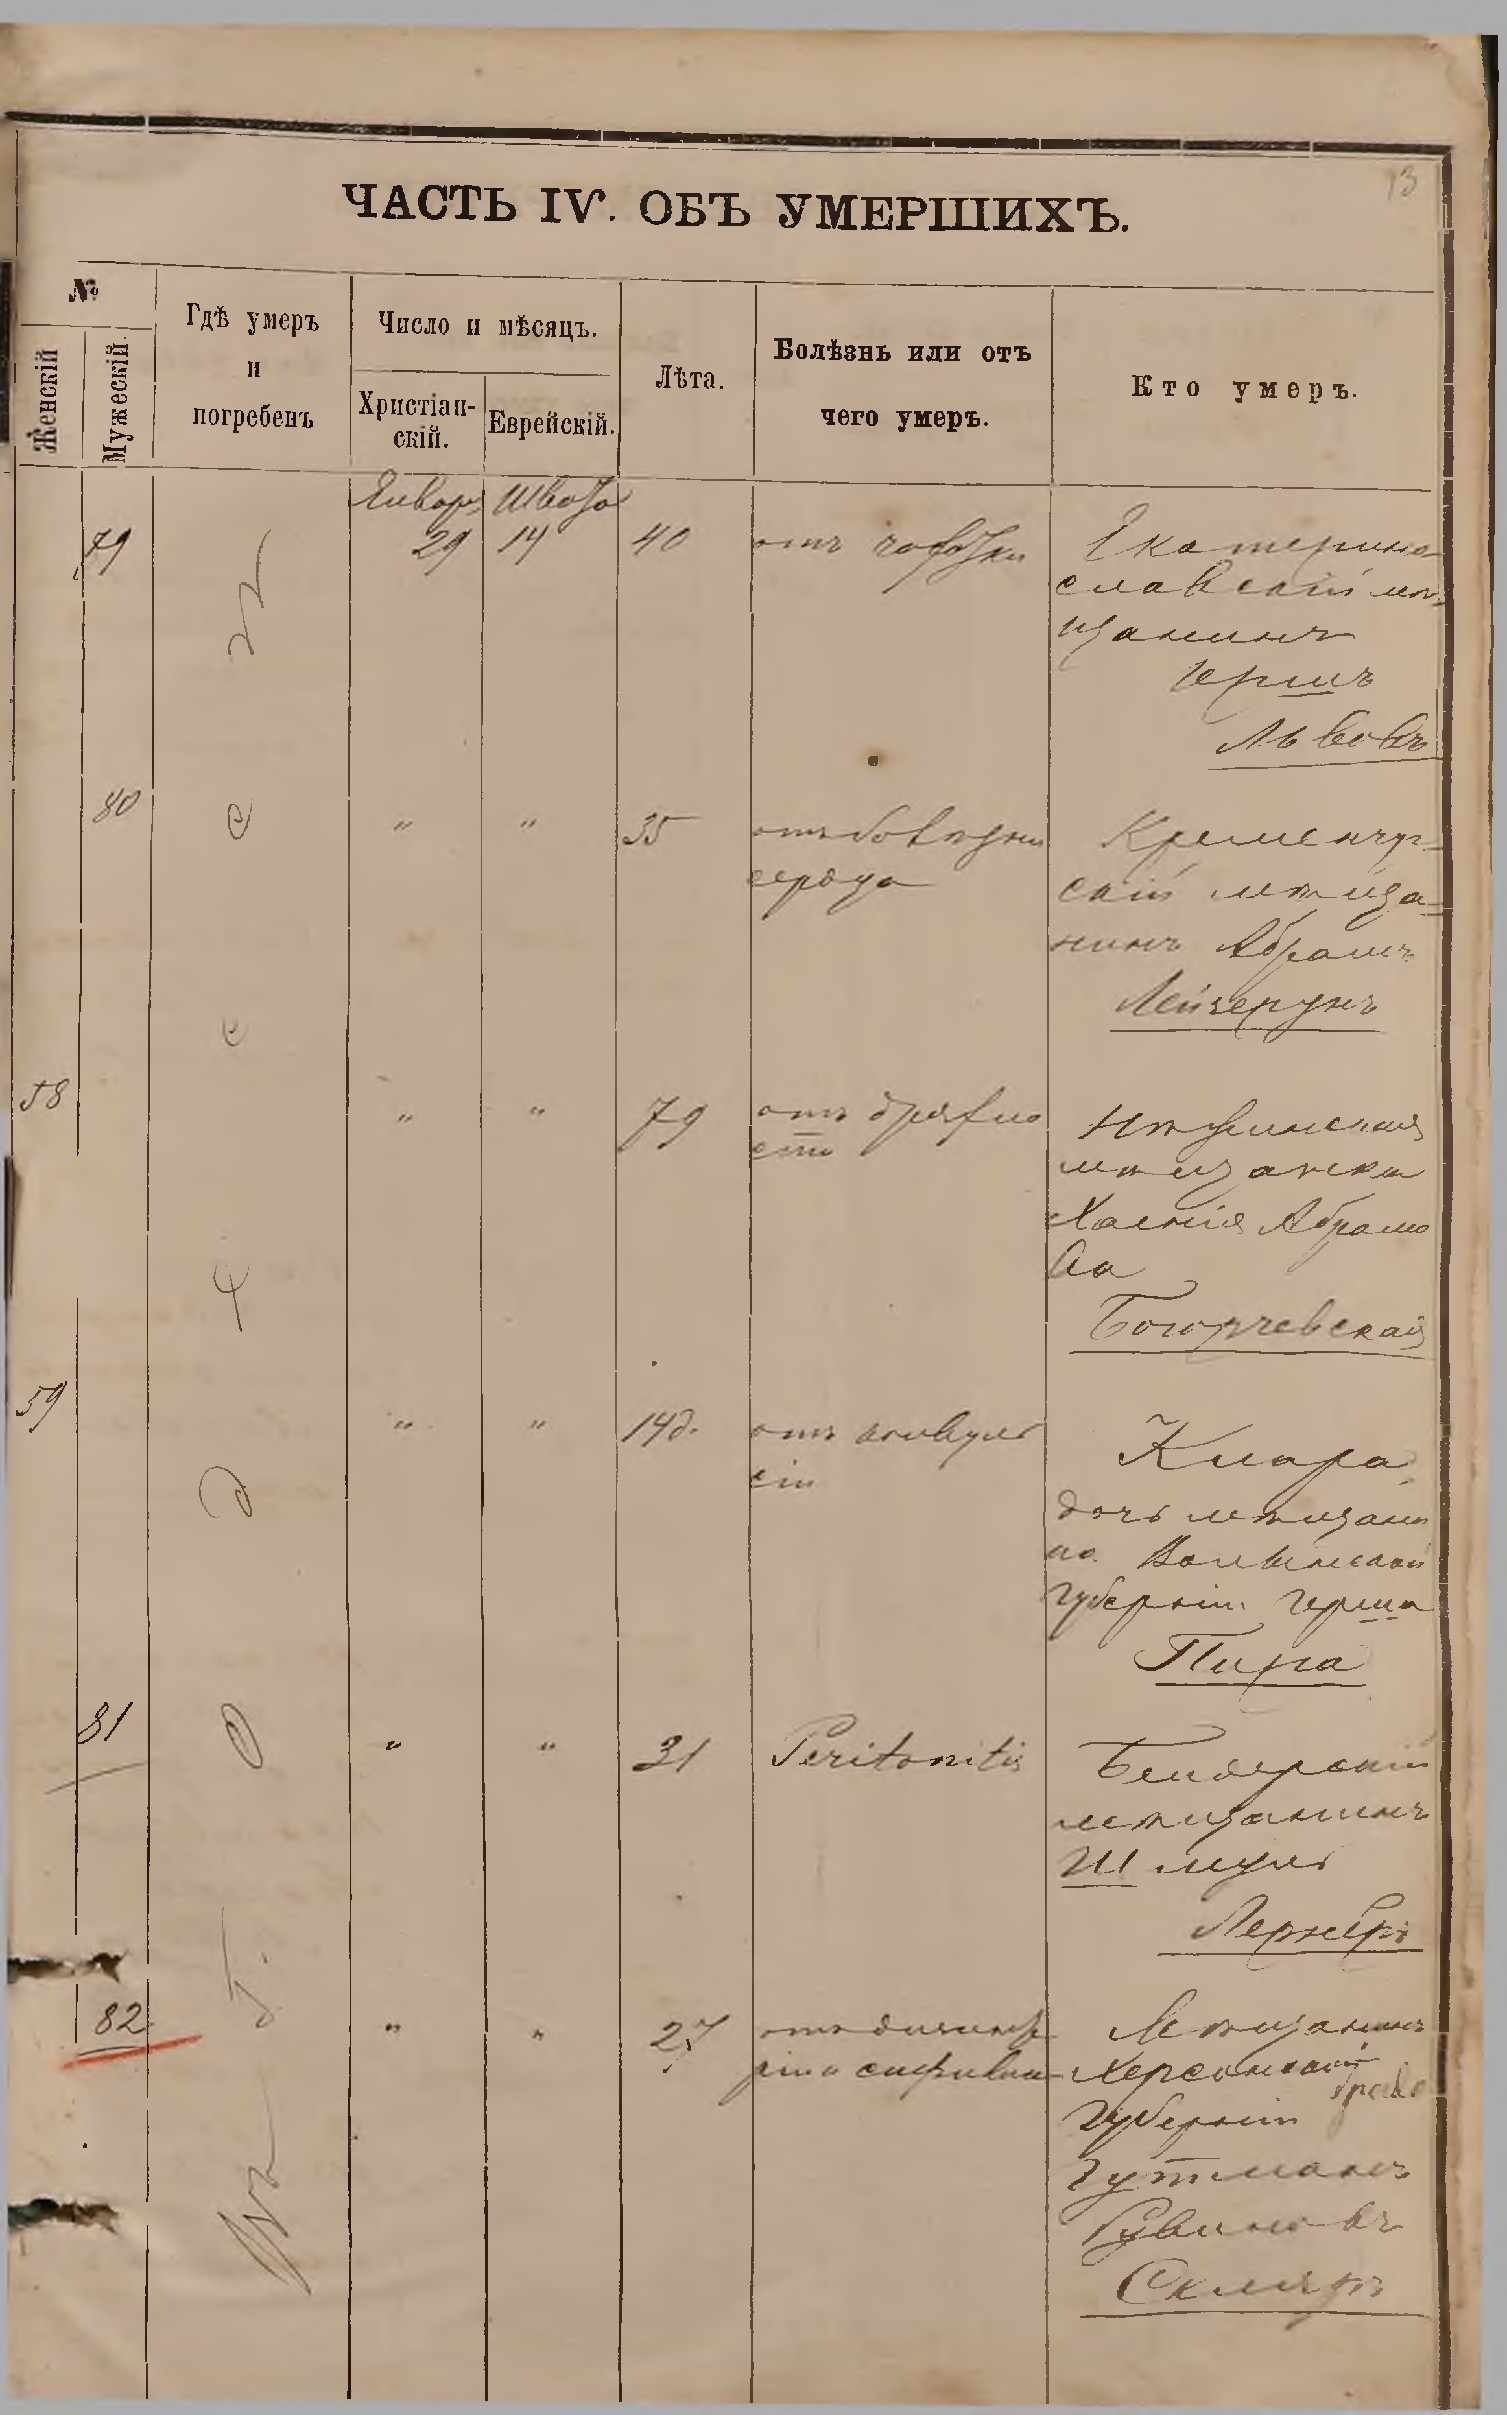 13
ЧАСТЬ IV. ОБЪ УМЕРШИХЪ.
№
Женскій
Мужескій.
Гдѣ умеръ
и
погребенъ
Число и мѣсяцъ.
Христіан-
скій.
Еврейскій.
Лѣта.
Болѣзнь или отъ
чего умеръ.
Кто умеръ.
въ г. Одессѣ
79
Январ. Швата
29 14 40 отъ чахотки
Екатерино
славскій мѣ
щанинъ
Гершъ
Львовъ
80 " " 35 отъ болѣзни
сердца
Кременчуг-
скій мѣща-
нинъ Абрамъ
58 " " 79 отъ дряхло
сти
Нѣжинская
мѣщанка
Абрамо
ва
59 " " 14 д. отъ конвуль
сіи
Клара
дочь мѣщани
на Волынской
губерніи Герша
Пира
81 " " 31 Peritonitis
Бендерскій
мѣщанинъ
Шмуль
Лернеръ
82 " " 27
Мѣщанинъ
Херсонской
губерніи
Гутманъ
Рувиновъ
Скляръ